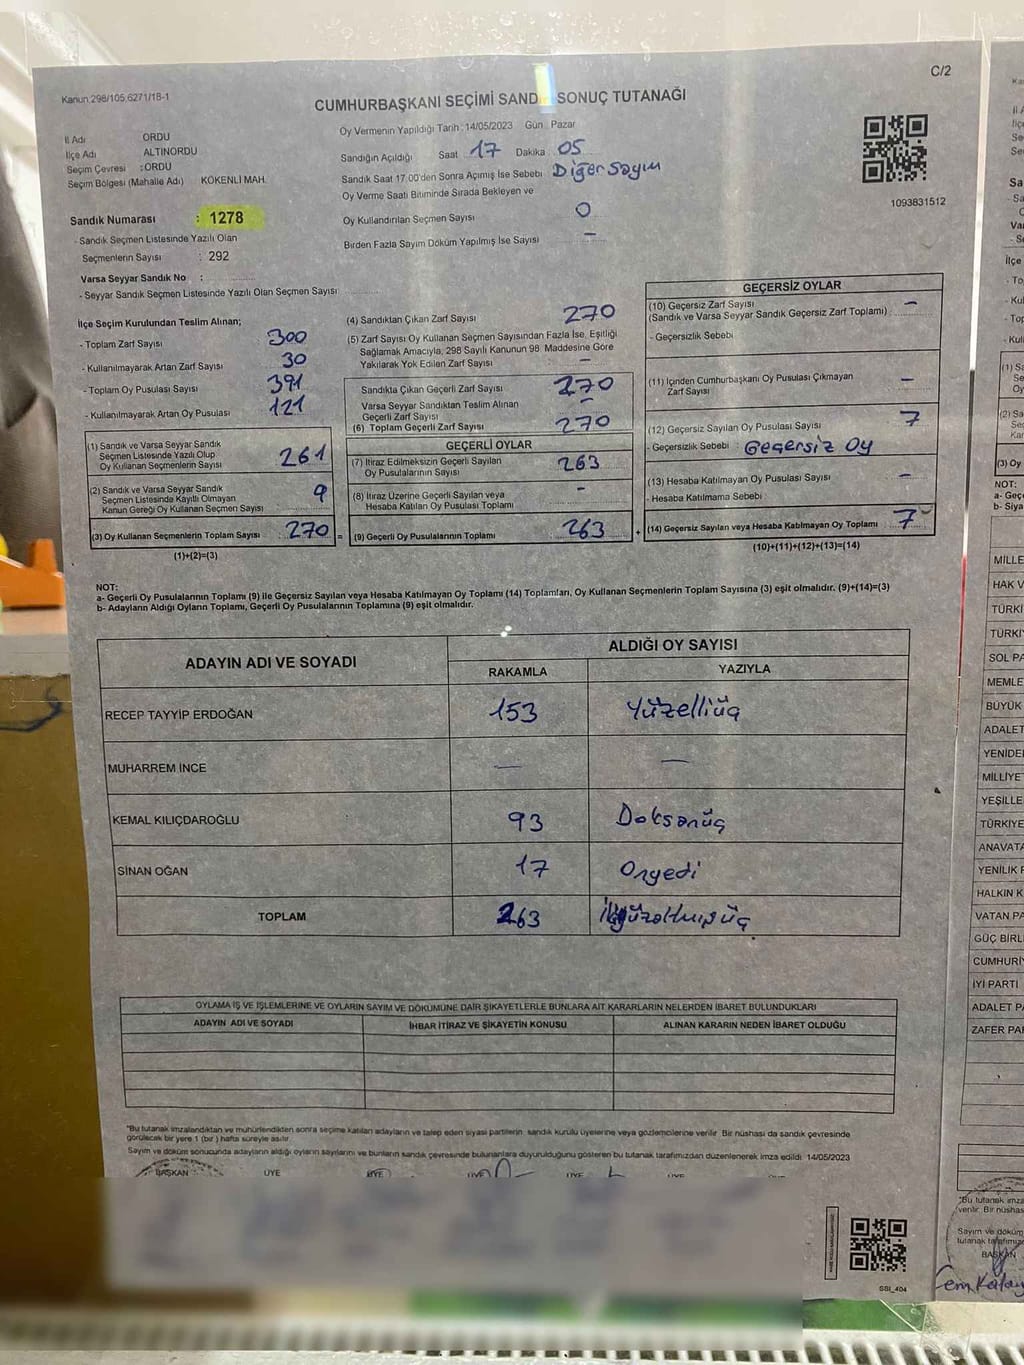 C/2
Kanun:298/105,6271/18-1
CUMHURBAŞKANI SEÇİMİ SANDIK SONUÇ TUTANAĞI
İl Adı ORDU
İlçe Adı ALTINORDU
Seçim Çevresi :ORDU
Seçim Bölgesi (Mahalle Adı) KÖKENLİ MAH.
Sandık Numarası : 1278
- Sandık Seçmen Listesinde Yazılı Olan
Seçmenlerin Sayısı : 292
Varsa Seyyar Sandık No :
- Seyyar Sandık Seçmen Listesinde Yazılı Olan Seçmen Sayısı:
Oy Vermenin Yapıldığı Tarih :14/05/2023 Gün : Pazar
Sandığın Açıldığı Saat 17 Dakika 05
Sandık Saat 17.00'den Sonra Açımış İse Sebebi Diğer Sayım
Oy Verme Saati Bitiminde Sırada Bekleyen ve
Oy Kullandırılan Seçmen Sayısı 0
Birden Fazla Sayım Döküm Yapılmış İse Sayısı –
1093831512
İlçe Seçim Kurulundan Teslim Alınan;
- Toplam Zarf Sayısı 300
- Kullanılmayarak Artan Zarf Sayısı 30
- Toplam Oy Pusulası Sayısı 391
- Kullanılmayarak Artan Oy Pusulası 121
(1) Sandık ve Varsa Seyyar Sandık
Seçmen Listesinde Yazılı Olup
Oy Kullanan Seçmenlerin Sayısı 261
(2) Sandık ve Varsa Seyyar Sandık
Seçmen Listesinde Kayıtlı Olmayan
Kanun Gereği Oy Kullanan Seçmen Sayısı 9
(3) Oy Kullanan Seçmenlerin Toplam Sayısı 270 =
(1)+(2)=(3)
(4) Sandıktan Çıkan Zarf Sayısı 270
(5) Zarf Sayısı Oy Kullanan Seçmen Sayısından Fazla İse, Eşitliği
Sağlamak Amacıyla, 298 Sayılı Kanunun 98. Maddesine Göre
Yakılarak Yok Edilen Zarf Sayısı –
Sandıkta Çıkan Geçerli Zarf Sayısı 270
Varsa Seyyar Sandıktan Teslim Alınan
Geçerli Zarf Sayısı –
(6) Toplam Geçerli Zarf Sayısı 270
GEÇERLİ OYLAR
(7) İtiraz Edilmeksizin Geçerli Sayılan
Oy Pusulalarının Sayısı 263
(8) İtiraz Üzerine Geçerli Sayılan veya
Hesaba Katılan Oy Pusulaları Toplamı –
(9) Geçerli Oy Pusulalarının Toplamı 263 +
GEÇERSİZ OYLAR
(10) Geçersiz Zarf Sayısı –
(Sandık ve Varsa Seyyar Sandık Geçersiz Zarf Toplamı)
- Geçersizlik Sebebi
(11) İçinden Cumhurbaşkanı Oy Pusulası Çıkmayan
Zarf Sayısı –
(12) Geçersiz Sayılan Oy Pusulası Sayısı 7
- Geçersizlik Sebebi : Geçersiz Oy
(13) Hesaba Katılmayan Oy Pusulası Sayısı –
- Hesaba Katılmama Sebebi
(14) Geçersiz Sayılan veya Hesaba Katılmayan Oy Toplamı 7
(10)+(11)+(12)+(13)=(14)
NOT:
a- Geçerli Oy Pusulalarının Toplamı (9) ile Geçersiz Sayılan veya Hesaba Katılmayan Oy Toplamı (14) Toplamları, Oy Kullanan Seçmenlerin Toplam Sayısına (3) eşit olmalıdır. (9)+(14)=(3)
b- Adayların Aldığı Oyların Toplamı, Geçerli Oy Pusulalarının Toplamına (9) eşit olmalıdır.
ADAYIN ADI VE SOYADI ALDIĞI OY SAYISI
RAKAMLA YAZIYLA
RECEP TAYYİP ERDOĞAN 153 Yüzelliüç
MUHARREM İNCE — —
KEMAL KILIÇDAROĞLU 93 Doksanüç
SİNAN OĞAN 17 Onyedi
TOPLAM 263 İkiyüzaltmışüç
OYLAMA İŞ VE İŞLEMLERİNE VE OYLARIN SAYIM VE DÖKÜMÜNE DAİR ŞİKAYETLERLE BUNLARA AİT KARARLARIN NELERDEN İBARET BULUNDUKLARI
ADAYIN ADI VE SOYADI İHBAR İTİRAZ VE ŞİKAYETİN KONUSU ALINAN KARARIN NEDEN İBARET OLDUĞU
*Bu tutanak imzalandıktan ve mühürlendikten sonra seçime katılan adayların ve talep eden siyasi partilerin sandık kurulu üyelerine veya gözlemcilerine verilir. Bir nüshası da sandık çevresinde
görülecek bir yere 1 (bir) hafta süreyle asılır.
Sayım ve döküm sonucunda adayların aldığı oyların sayılarını ve bunların sandık çevresinde bulunanlara duyurulduğunu gösteren bu tutanak tarafımızdan düzenlenerek imza edildi. 14/05/2023
BAŞKAN ÜYE ÜYE ÜYE ÜYE ÜYE
SSI_404
(3) Oy
NOT:
a- Geçe
b- Siya
MİLLE
HAK V
TÜRKİ
TÜRKİY
SOL PA
MEMLE
BÜYÜK
ADALET
YENİDE
MİLLİYE
YEŞİLLE
TÜRKİYE
ANAVATA
YENİLİK P
HALKIN K
VATAN PA
GÜÇ BİRLİ
CUMHURİY
İYİ PARTİ
ADALET PA
ZAFER PAR
*Bu tutanak imza
verilir. Bir nüshas
Sayım ve döküm
tutanak tarafımız
BAŞKAN
Cem Kalay